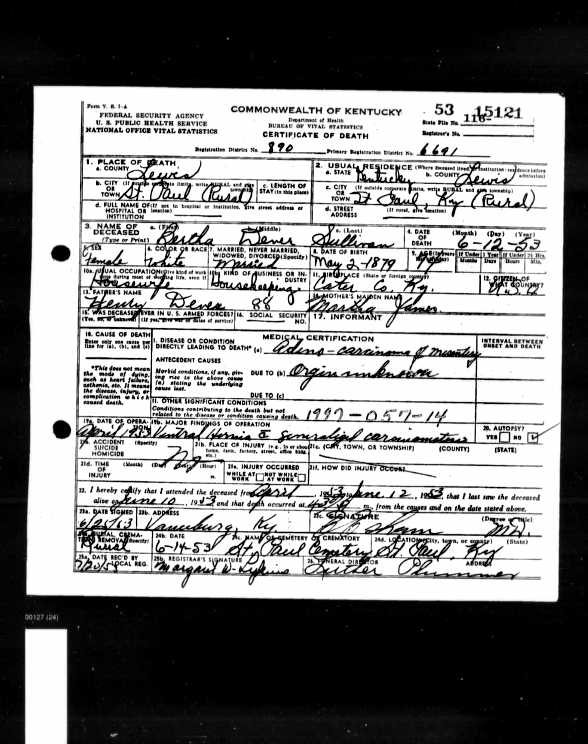 Form V. S. 1-A
FEDERAL SECURITY AGENCY
U. S. PUBLIC HEALTH SERVICE
NATIONAL OFFICE VITAL STATISTICS
COMMONWEALTH OF KENTUCKY
Department of Health
BUREAU OF VITAL STATISTICS
CERTIFICATE OF DEATH
53 15121
State File No. 116
Registrar's No.
Registration District No. 890 Primary Registration District No. 6691
1. PLACE OF DEATH
a. COUNTY Lewis
2. USUAL RESIDENCE (Where deceased lived. If institution: residence before admission)
a. STATE Kentucky b. COUNTY Lewis
b. CITY (If outside corporate limits, write RURAL and give
OR
TOWN St. Paul (Rural)
c. LENGTH OF
STAY (in this place)
c. CITY (If outside corporate limits, write RURAL and give township)
OR
TOWN St Paul, Ky (Rural)
d. FULL NAME OF (If not in hospital or institution, give street address or location)
HOSPITAL OR
INSTITUTION
d. STREET
ADDRESS (If rural, give location)
3. NAME OF
DECEASED
(Type or Print)
a. (First) Bertha (Middle) Dever c. (Last) Sullivan
4. DATE
OF
DEATH
(Month) (Day) (Year)
6-12-53
5. SEX Female
6. COLOR OR RACE White
7. MARRIED, NEVER MARRIED,
WIDOWED, DIVORCED (Specify)
Married
8. DATE OF BIRTH
May 2-1879
If Under 1 Year
Months Days
If Under 24 Hrs.
Hours Min.
10a. USUAL OCCUPATION (Give kind of work
Housewife
10b. KIND OF BUSINESS OR IN-
DUSTRY
Housekeeping
11. BIRTHPLACE (State or foreign country)
Carter Co. Ky.
12. CITIZEN OF
WHAT COUNTRY?
U.S.A
13. FATHER'S NAME
Henry Dever 88
14. MOTHER'S MAIDEN NAME
Martha James
15. WAS DECEASED EVER IN U. S. ARMED FORCES?
(Yes, no, or unknown) (If yes, give war or dates of service)
16. SOCIAL SECURITY
NO.
17. INFORMANT
18. CAUSE OF DEATH
Enter only one cause per
line for (a), (b), and (c)
MEDICAL CERTIFICATION
INTERVAL BETWEEN
ONSET AND DEATH
I. DISEASE OR CONDITION
DIRECTLY LEADING TO DEATH* (a) Adeno-carcinoma of mesentery
*This does not mean
the mode of dying,
such as heart failure,
asthenia, etc. It means
the disease, injury, or
complication which
caused death.
ANTECEDENT CAUSES
Morbid conditions, if any, giv-
ing rise to the above cause
(a) stating the underlying
cause last.
DUE TO (b) Orgin unknown
DUE TO (c)
II. OTHER SIGNIFICANT CONDITIONS
Conditions contributing to the death but not
related to the disease or condition causing death.
1999-057-14
19a. DATE OF OPERA-
TION
April 1953
19b. MAJOR FINDINGS OF OPERATION
Ventral Hernia & generalized carcinomatosis
20. AUTOPSY?
YES NO
21a. ACCIDENT (Specify)
SUICIDE
HOMICIDE
No
21b. PLACE OF INJURY (e.g., in or about
home, farm, factory, street, office bldg., etc.)
21c. (CITY, TOWN, OR TOWNSHIP) (COUNTY) (STATE)
21d. TIME (Month) (Day) (Year) (Hour)
OF
INJURY m.
21e. INJURY OCCURRED
WHILE AT WORK NOT WHILE AT WORK
21f. HOW DID INJURY OCCUR?
22. I hereby certify that I attended the deceased from April, 1953, to June 12, 1953, that I last saw the deceased
alive on June 10, 1953 and that death occurred at m., from the causes and on the date stated above.
23a. DATE SIGNED
6/25/53
23b. ADDRESS
Vanceburg, Ky.
23c. SIGNATURE
(Degree or Title)
M.D.
24a. BURIAL, CREMA-
TION, REMOVAL (Specify)
Burial
24b. DATE
6-14-53
24c. NAME OF CEMETERY OR CREMATORY
St. Paul Cemetery
24d. LOCATION (City, town, or county) (State)
St Paul, Ky
25a. DATE REC'D BY
LOCAL REG.
25b. REGISTRAR'S SIGNATURE
26. FUNERAL DIRECTOR ADDRESS
Luther Plummer
00127 (24)